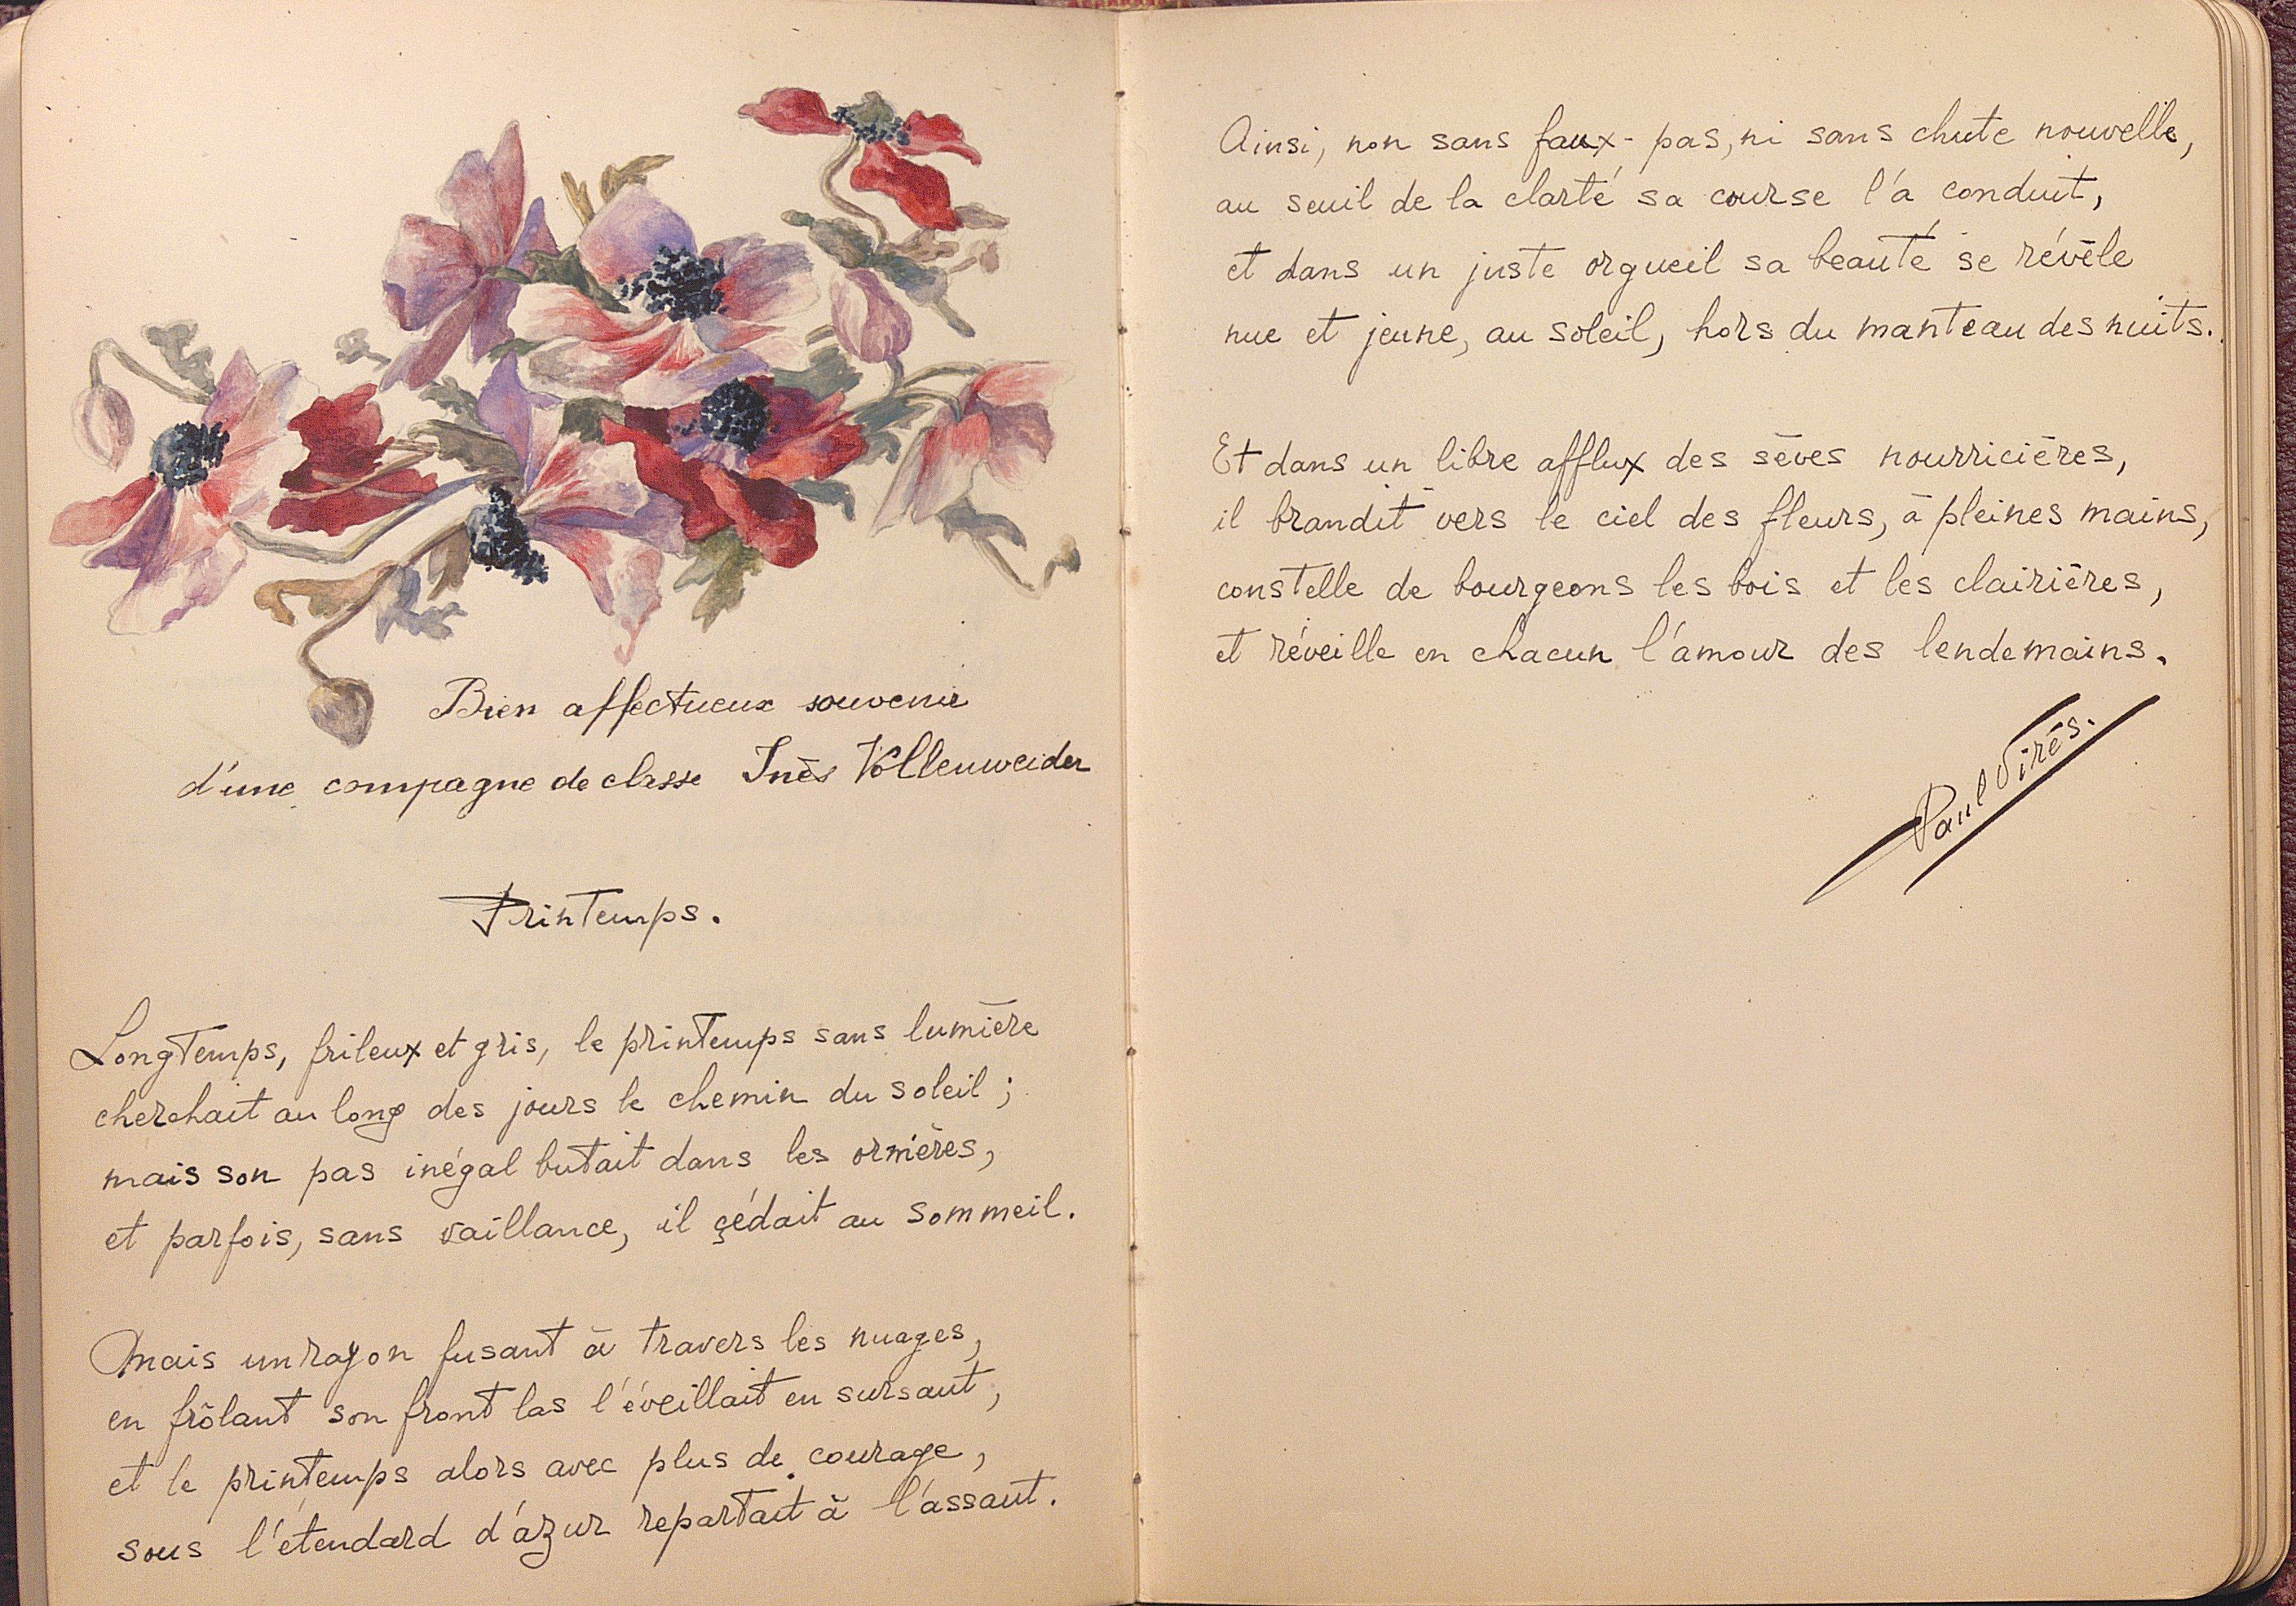 Bien affectueux souvenir
d'une compagne de classe Inès Vollenweider
Printemps.
Longtemps, frileux et gris, le printemps sans lumière
cherchait au long des jours le chemin du soleil ;
mais son pas inégal butait dans les ornières,
et parfois, sans vaillance, il çédait au sommeil.
Mais un rayon fusant à travers les nuages,
en frôlant son front las l'éveillait en sursaut,
et le printemps alors avec plus de courage,
sous l'étendard d'azur repartait à l'assaut.
Ainsi, non sans faux-pas, ni sans chute nouvelle,
au seuil de la clarté sa course l'a conduit,
et dans un juste orgueil sa beauté se révèle
nue et jeune, au soleil, hors du manteau des nuits.
Et dans un libre afflux des sèves nourricières,
il brandit vers le ciel des fleurs, à pleines mains,
constelle de bourgeons les bois et les clairières,
et réveille en chacun l'amour des lendemains.
Paul Virès.